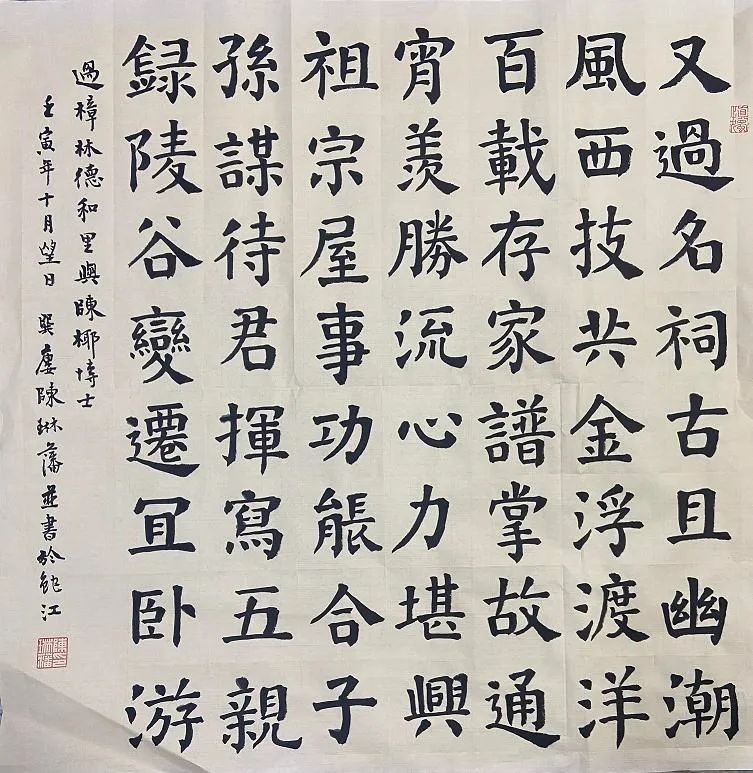 又過名祠古且幽潮
風西技共金浮渡洋
百載存家譜掌故通
宵羨勝流心力堪興
祖宗屋事功能合子
孫謀待君揮寫五親
録陵谷變遷冝卧游
過樟林德和里與陳椰博士
壬寅年十月望日 巽廔陳琳藩並書於鮀江